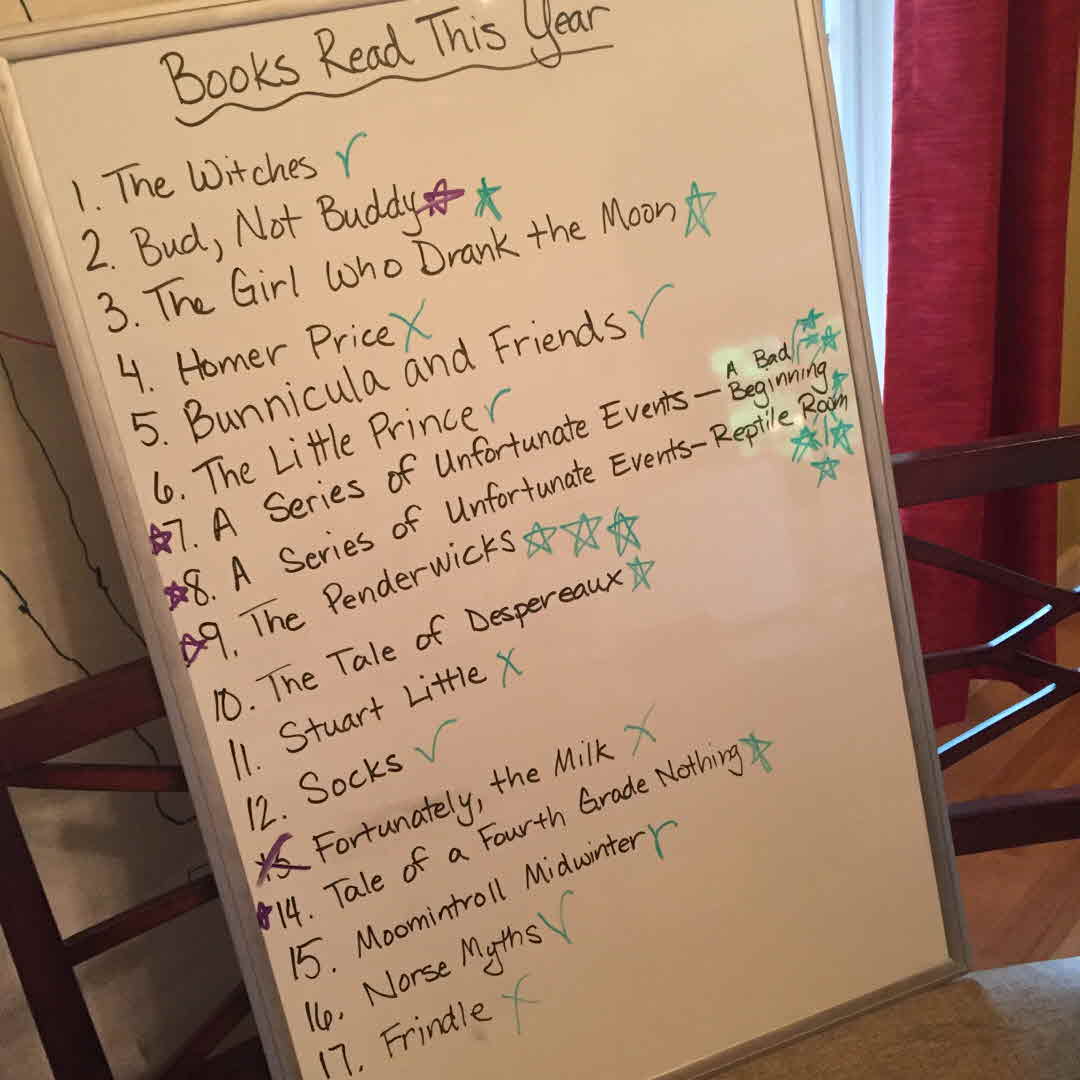 Books Read This Year
1. The Witches
2. Bud, Not Buddy
3. The Girl Who Drank the Moon
4. Homer Price
5. Bunnicula and Friends
6. The Little Prince
7. A Series of Unfortunate Events - A Bad Beginning
8. A Series of Unfortunate Events - Reptile Room
9. The Penderwicks
10. The Tale of Despereaux
11. Stuart Little
12. Socks
13. Fortunately, the Milk
14. Tale of a Fourth Grade Nothing
15. Moomintroll Midwinter
16. Norse Myths
17. Frindle